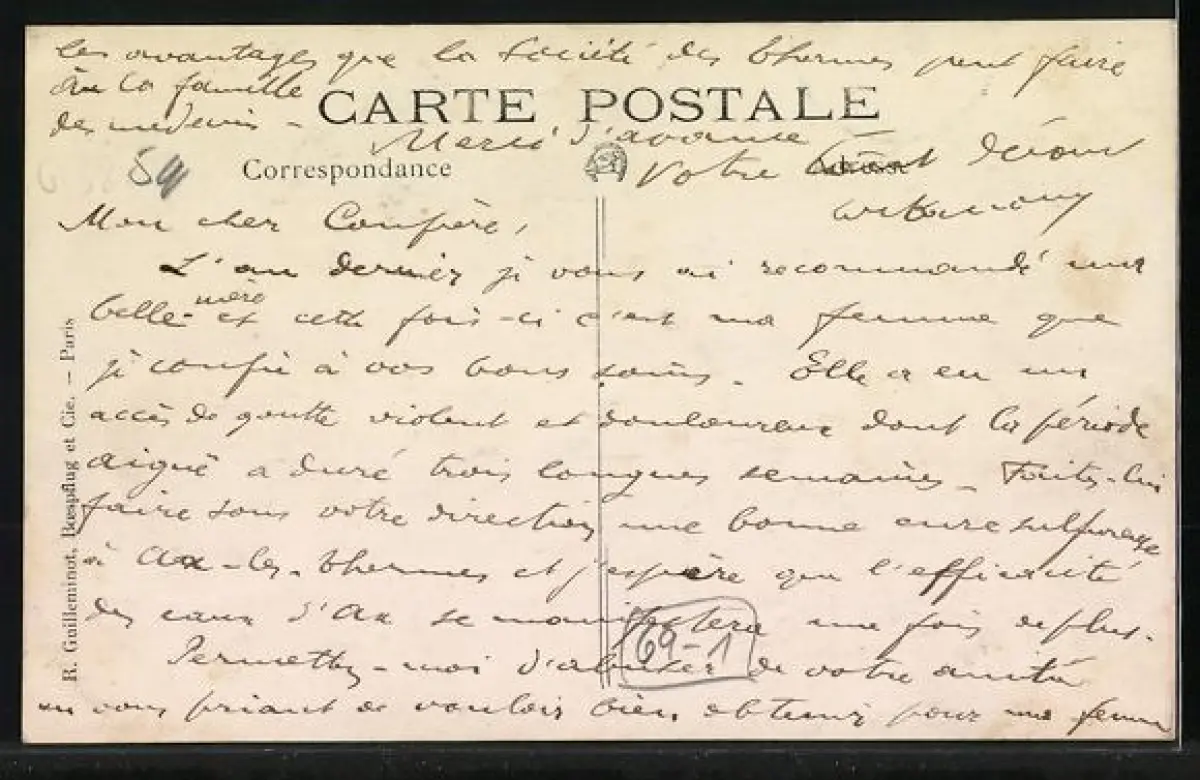 les avantages que la Société des Thermes peut faire
à la famille
des medecins -
CARTE POSTALE
Merci d'avance
Votre dévoué
54
Correspondance
Mon cher Confrère,
L'an dernier je vous ai recommandé ma
belle-mère et cette fois-ci c'est ma femme que
je confie à vos bons soins. Elle a eu un
accès de goutte violent et douloureux dont la période
aiguë a duré trois longues semaines - Faites-lui
faire sous votre direction une bonne cure sulfureuse
à Ax-les-Thermes et j'espère que l'efficacité
des eaux d'Ax se manifestera une fois de plus.
69-1
Permettez-moi d'abuser de votre amitié
en vous priant de vouloir bien obtenir pour ma femme
R. Guilleminot, Bœspflug et Cie. - Paris